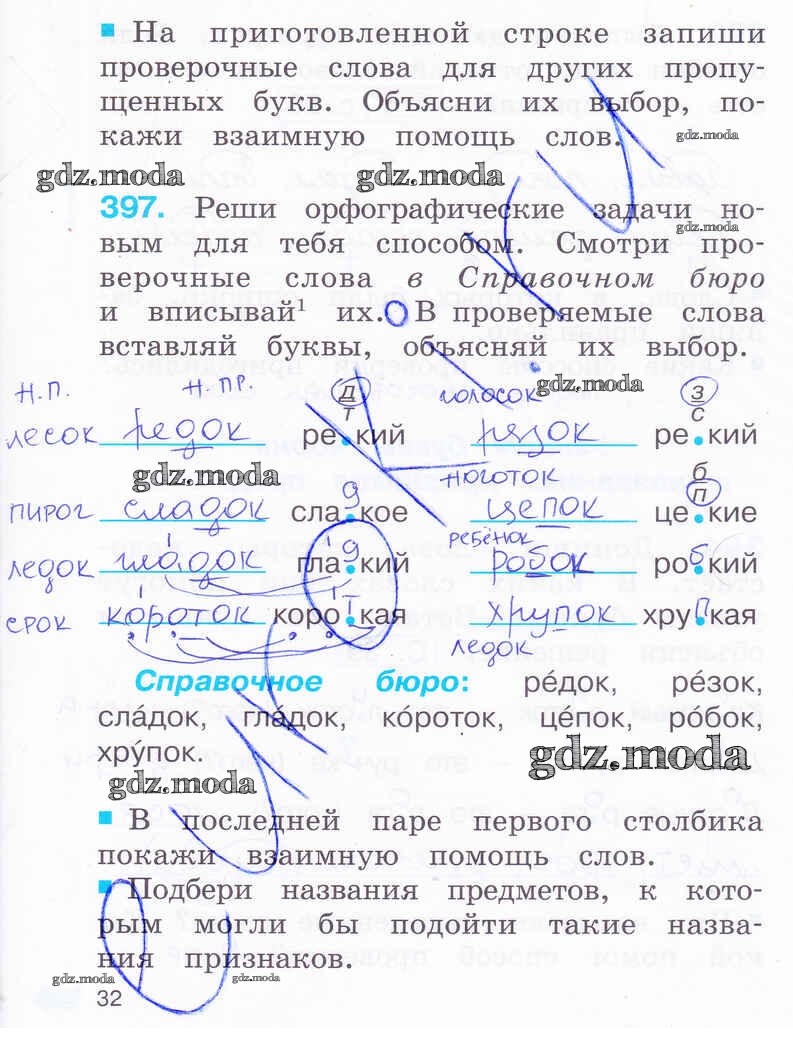 На приготовленной строке запиши
проверочные слова для других пропу-
щенных букв. Объясни их выбор, по
кажи взаимную помощь слов.
gdz.moda
gdz.moda gdz.moda
397. Реши орфографические задачи но-
gdz.moda
вым для тебя способом. Смотри про-
верочные слова в Справочном бюро
и вписывай¹ их. В проверяемые слова
вставляй буквы, объясняй их выбор.
gdz.moda
Н.П. Н.ПР. д т голосок з с
лесок редок ре.кий резок ре.кий
gdz.moda ноготок б п
пирог сладок сла д кое цепок це.кие
ребёнок
ледок гладок гла д кий робок ро б кий
срок короток коро т кая хрупок хру п кая
ледок
Справочное бюро: ре́док, ре́зок,
сла́док, гла́док, ко́роток, це́пок, ро́бок,
хру́пок.
gdz.moda
gdz.moda
В последней паре первого столбика
покажи взаимную помощь слов.
Подбери названия предметов, к кото-
рым могли бы подойти такие назва-
ния признаков.
gdz.moda gdz.moda
32